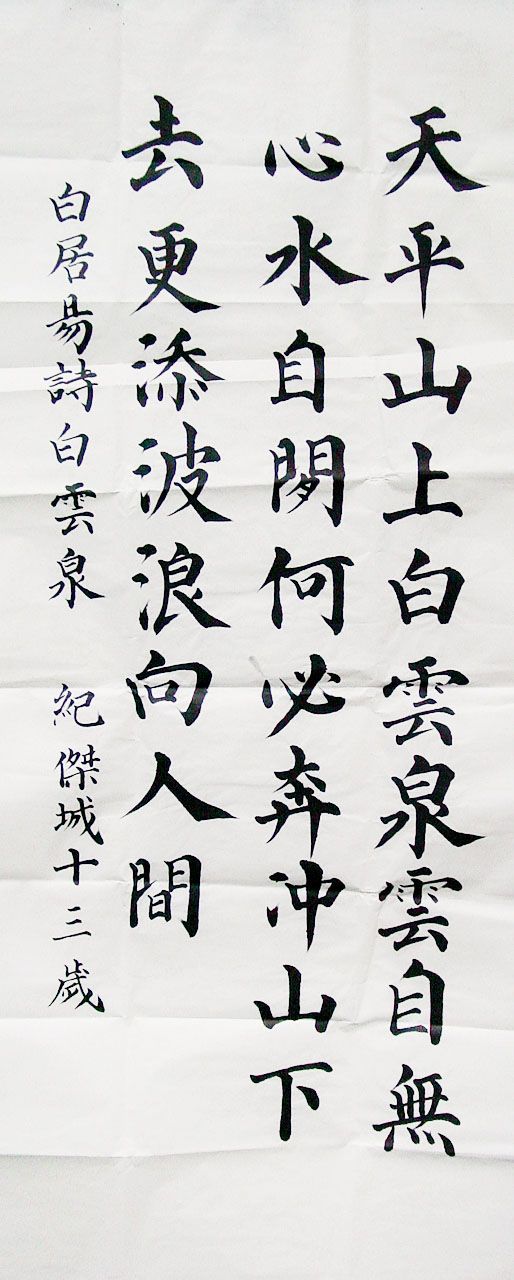 天平山上白雲泉雲自無
心水自閒何必奔冲山下
去更添波浪向人間
白居易詩白雲泉 紀傑城十三歲